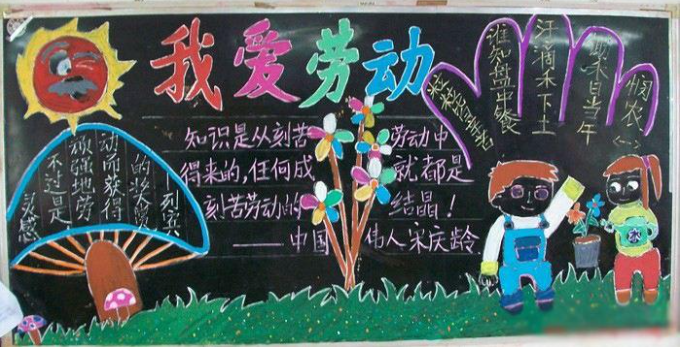 我爱劳动
知识是从刻苦劳动中
得来的,任何成就都是
刻苦劳动的结晶!
——中国伟人宋庆龄
灵感
不过是
顽强地劳
动而获得
的奖赏
列宾
悯农
锄禾日当午
汗滴禾下土
谁知盘中餐
粒粒皆辛苦